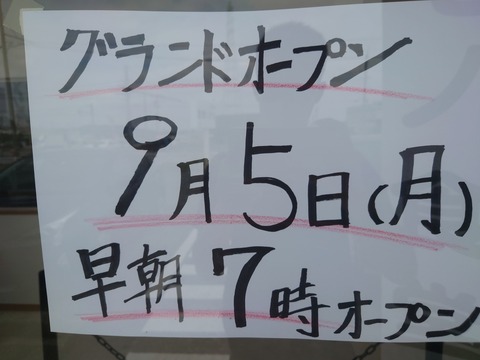 グランドオープン
9月5日(月)
早朝7時オープン